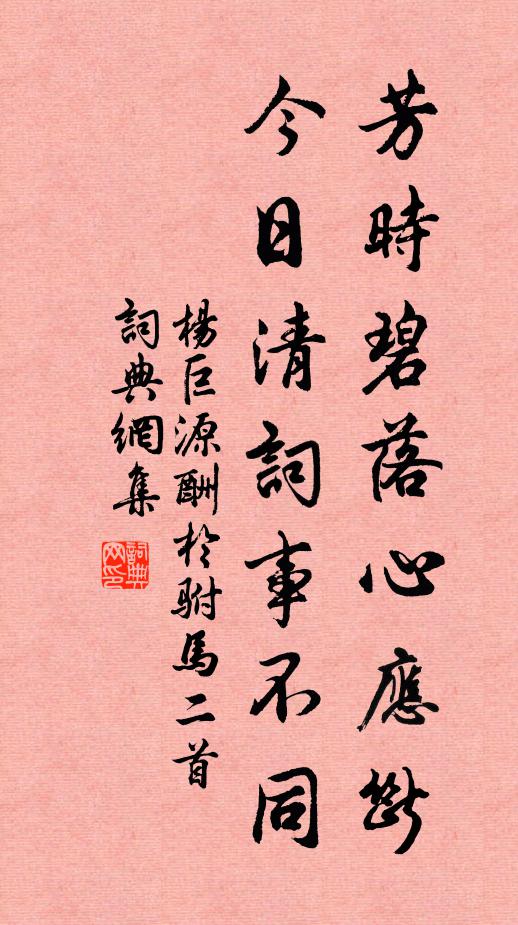 芳時碧落心應斷
今日清詞事不同
楊巨源酬於駙馬二首
詞典網集
詞典網印